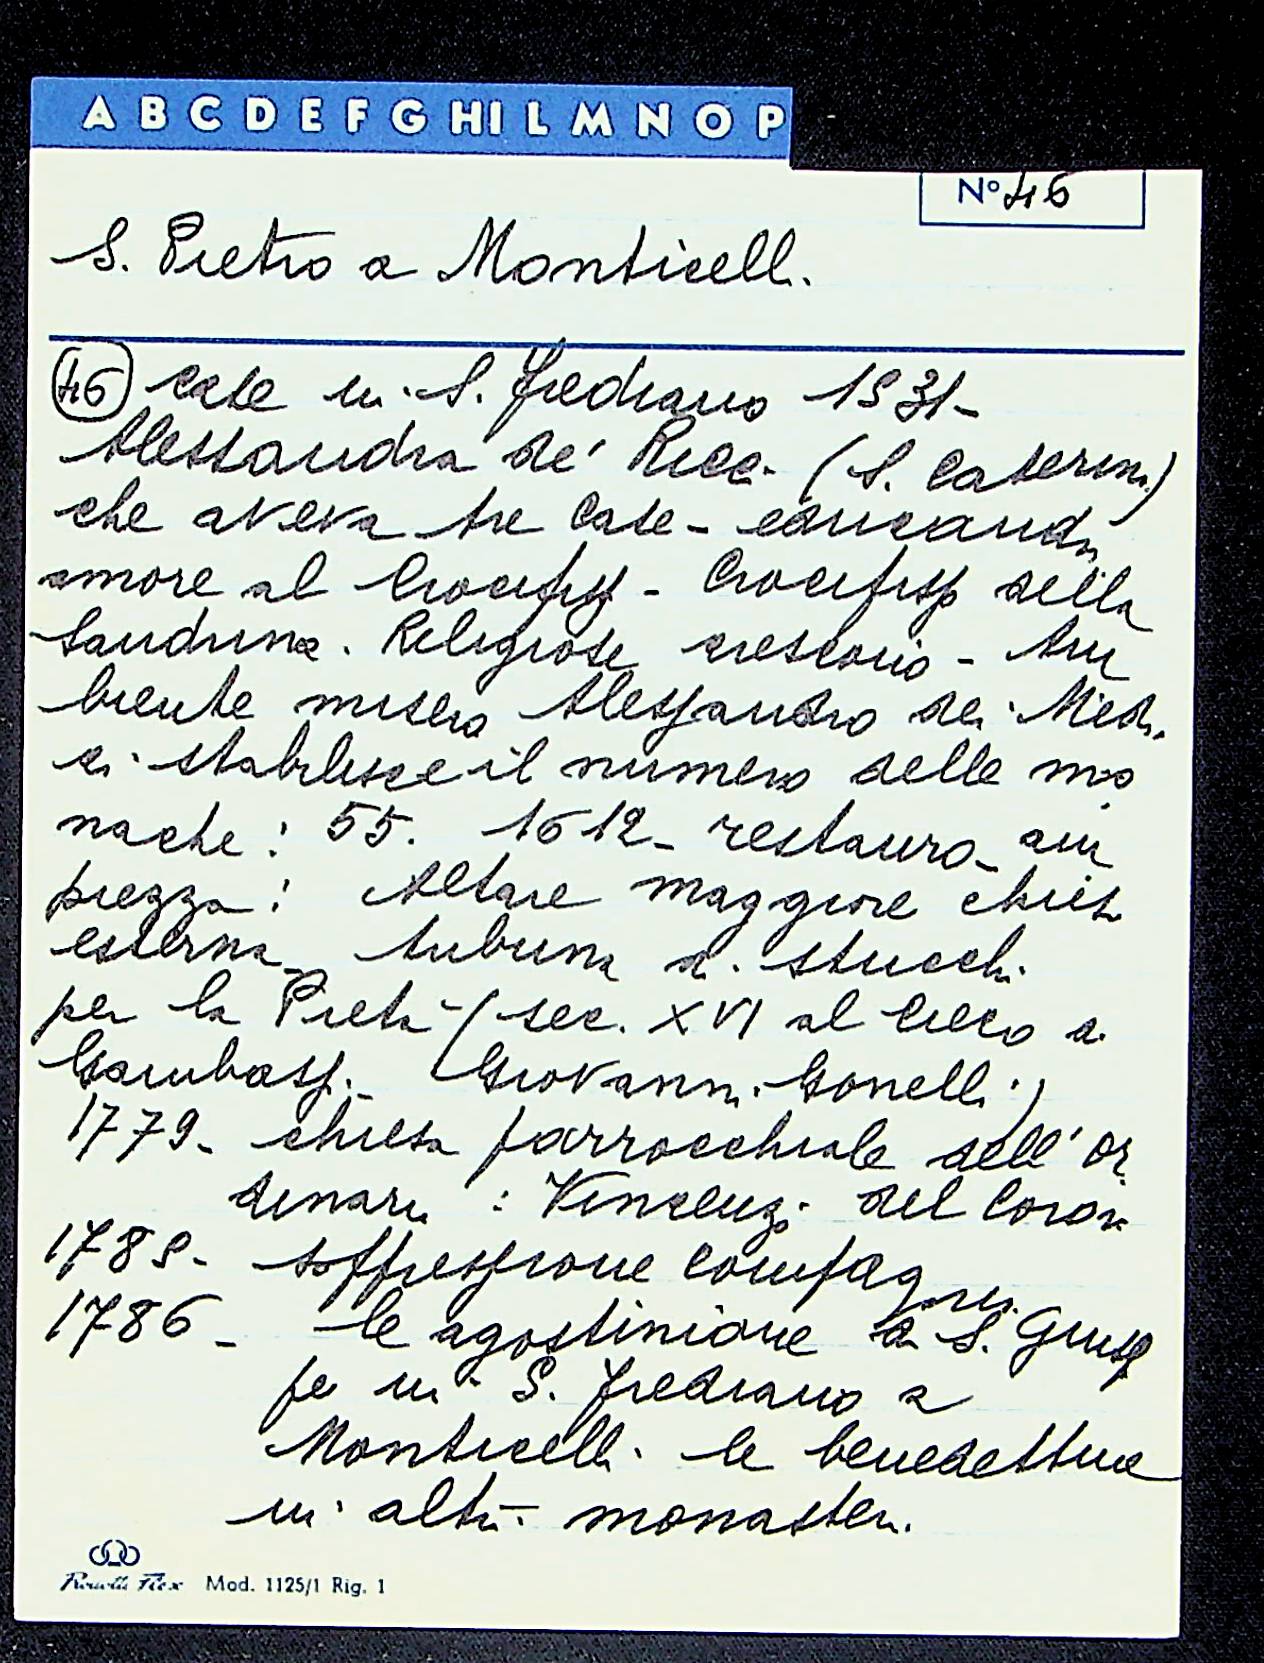 A B C D E F G HI L M N O P
N° 46
S. Pietro a Monticelli.
46 case in S. Frediano 1531-
Alessandra de' Ricci (S. Caterina)
che aveva tre case - educande
amore al Crocifisso - Crocifisso della
Sandrina. Religiose crescono - Am
biente misero Alessandro dei Medi
ci stabilisce il numero delle mo
nache: 55. 1612 - restauro - am
piezza: Altare maggiore chiesa
esterna tribuna di stucchi
per la Pietà - (sec. XVI al Cieco di
Gambassi. Giovanni Gonelli)
1779 - chiesa parrocchiale dell'Or
dinario : Vincenzo del Corona
1785 - soppressione compagnie.
1786 - le agostiniane a S. Giusep
pe in S. Frediano a
Monticelli. le benedettine
in altri monasteri.
Mod. 1125/1 Rig. 1